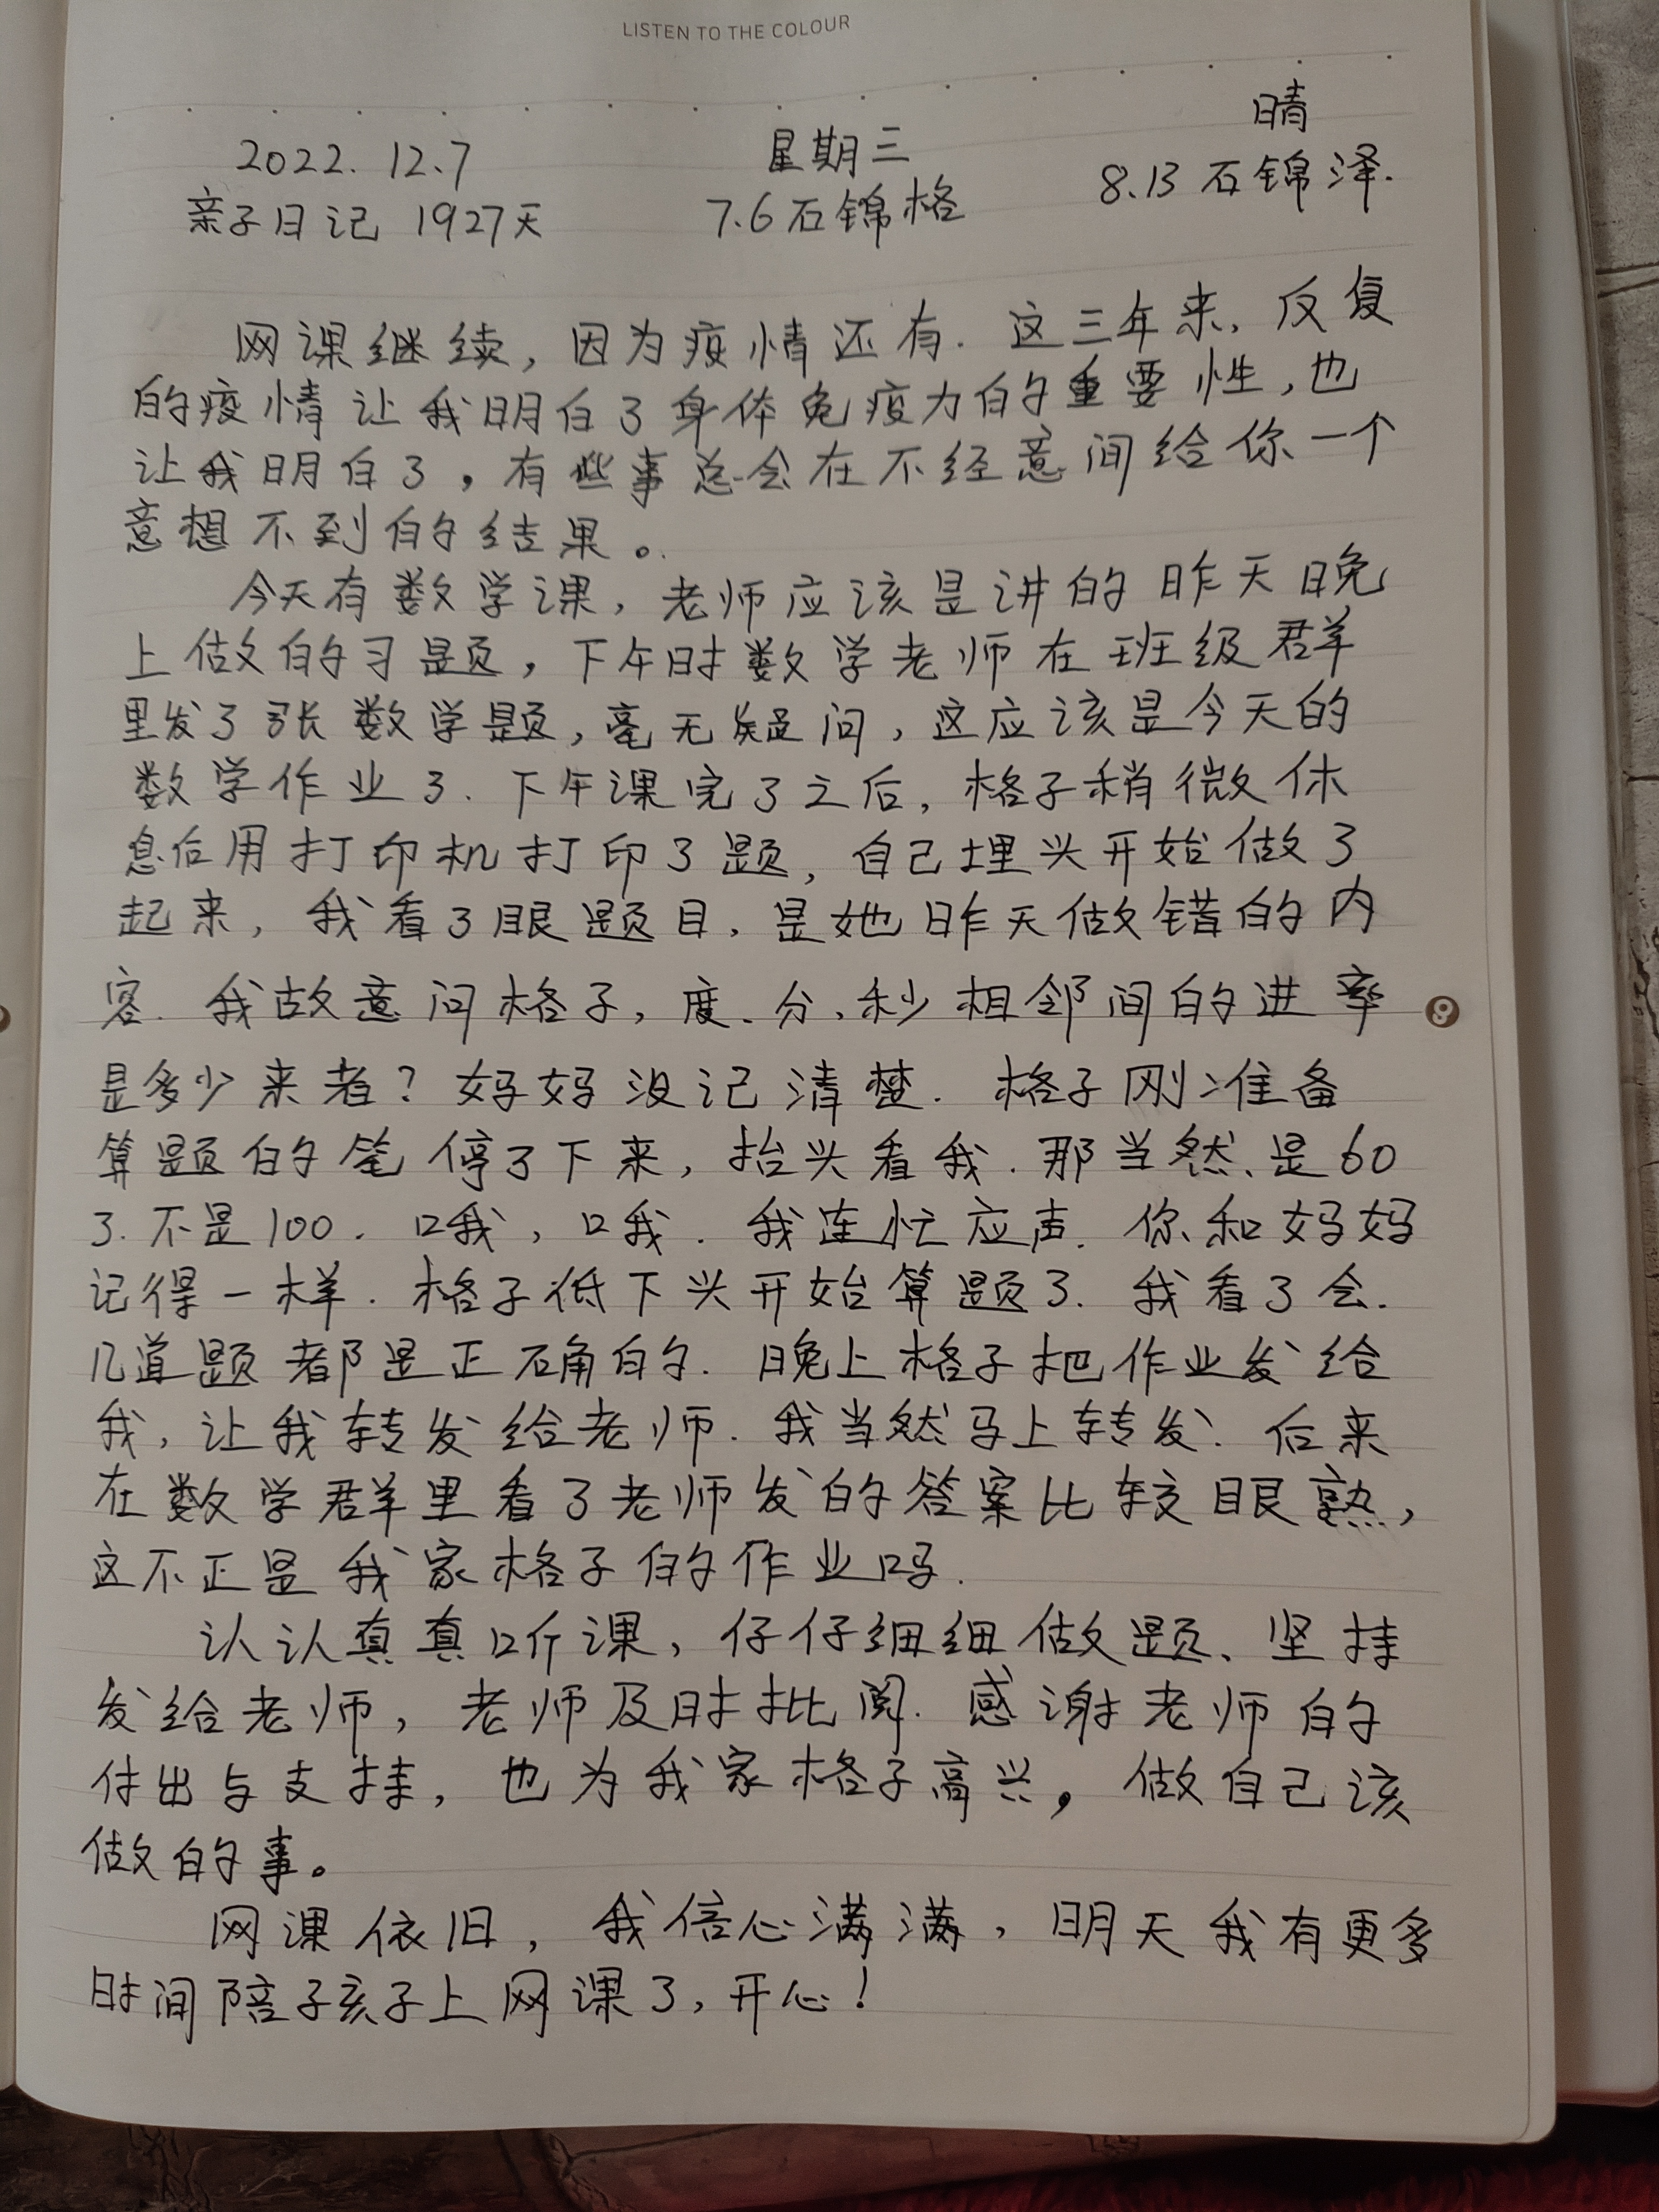 LISTEN TO THE COLOUR
晴
2022.12.7 星期三 8.13石锦泽.
亲子日记 1927天 7.6石锦格
网课继续,因为疫情还有.这三年来,反复
的疫情让我明白了身体免疫力的重要性,也
让我明白了,有些事总会在不经意间给你一个
意想不到的结果。
今天有数学课,老师应该是讲的昨天晚
上做的习题,下午时数学老师在班级群
里发了张数学题,毫无疑问,这应该是今天的
数学作业了.下午课完了之后,格子稍微休
息后用打印机打印了题,自己埋头开始做了
起来,我看了眼题目,是她昨天做错的内
容.我故意问格子,度、分、秒相邻间的进率
是多少来着?妈妈没记清楚.格子刚准备
算题的笔停了下来,抬头看我.那当然、是60
了.不是100.哦,哦.我连忙应声.你和妈妈
记得一样.格子低下头开始算题了.我看了会.
几道题都是正确的.晚上格子把作业发给
我,让我转发给老师.我当然马上转发.后来
在数学群里看了老师发的答案比较眼熟,
这不正是我家格子的作业吗.
认认真真听课,仔仔细细做题、坚持
发给老师,老师及时批阅.感谢老师的
付出与支持,也为我家格子高兴,做自己该
做的事。
网课依旧,我信心满满,明天我有更多
时间陪子孩子上网课了,开心!